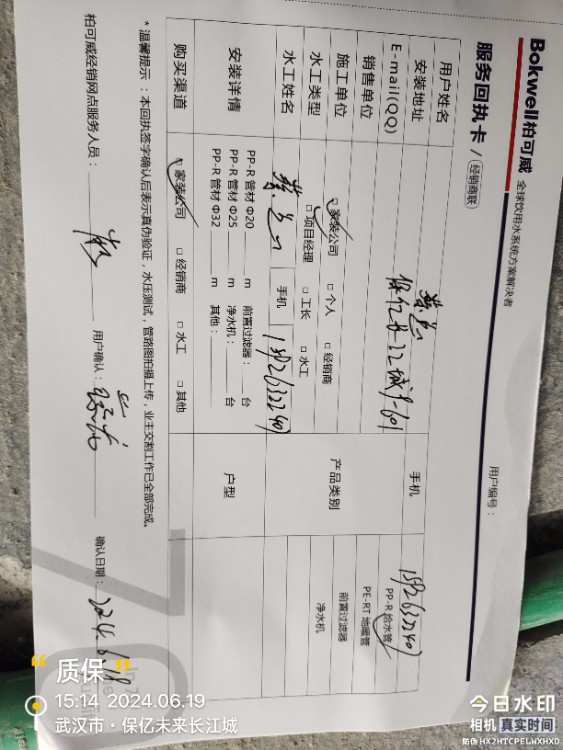 Bokwell柏可威 全球饮用水系统方案解决者
服务回执卡 / 经销商联
用户编号：
用户姓名 手机 15926322407
安装地址 保亿未来长江城9-601
E-mail(QQ)
销售单位 产品类别 PP-R 给水管
施工单位 家装公司 □ 个人 □ 经销商 PE-RT 地暖管
水工类型 □ 项目经理 □ 工长 □ 水工 前置过滤器
水工姓名 手机 15926322407 净水机
安装详情 PP-R 管材 Φ20 m 前置过滤器： 台 户型
PP-R 管材 Φ25 m 净水机： 台
PP-R 管材 Φ32 m 其他：
购买渠道 家装公司 □ 经销商 □ 水工 □ 其他
* 温馨提示：本回执签字确认后表示真伪验证，水压测试，管路图拍摄上传，业主交割工作已全部完成。
柏可威经销网点服务人员： 用户确认： 确认日期：
“质保”
15:14 2024.06.19
武汉市·保亿未来长江城
今日水印
相机 真实时间
防伪 HX2HTCPELWXHXD